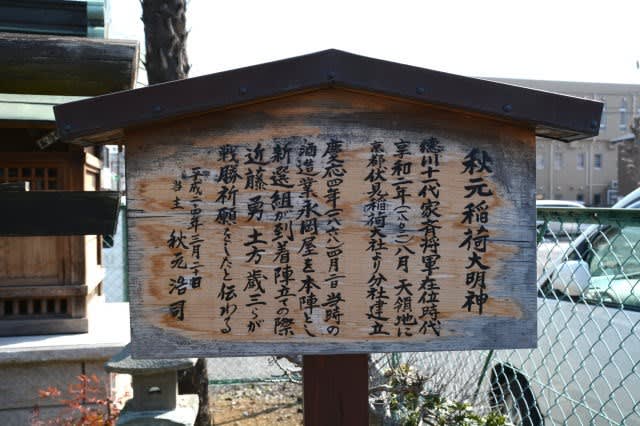 秋元稲荷大明神
徳川十一代家斉将軍在位時代
享和二年(一八〇二)八月 天領地に
京都伏見稲荷大社より分社建立
慶応四年(一八六八)四月二日 当時の
酒造業永岡屋を本陣とし
新選組が到着陣立ての際
近藤勇 土方歳三らが
戦勝祈願をしたと伝わる
平成二十四年三月二十日
当主 秋元浩司